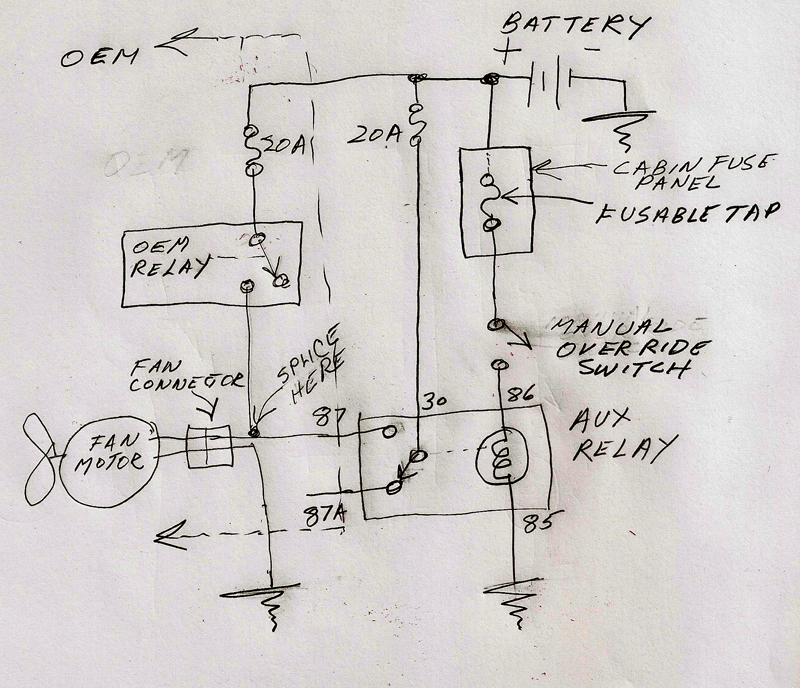 BATTERY
+ -
OEM
20A
20A
OEM
CABIN FUSE
PANEL
FUSABLE TAP
OEM
RELAY
MANUAL
OVERRIDE
SWITCH
FAN
CONNECTOR
SPLICE
HERE
87
30
86
AUX
RELAY
FAN
MOTOR
87A
85